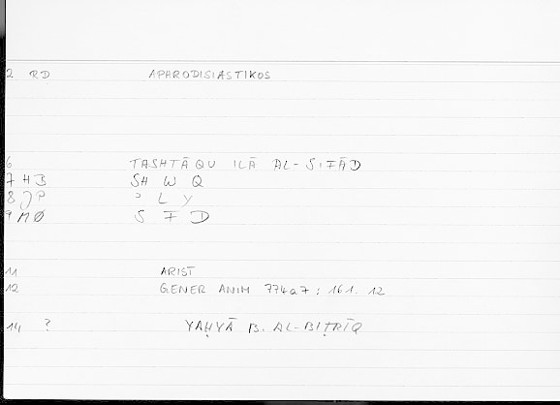 2 RD APHRODISIASTIKOS
6 TASHTĀQU ILĀ AL-SIFĀD
7 HB SH W Q
8 JP ʾ L Y
9 MØ S F D
11 ARIST
12 GENER ANIM 774a7 : 161. 12
14 ? YAḤYĀ B. AL-BIṬRĪQ